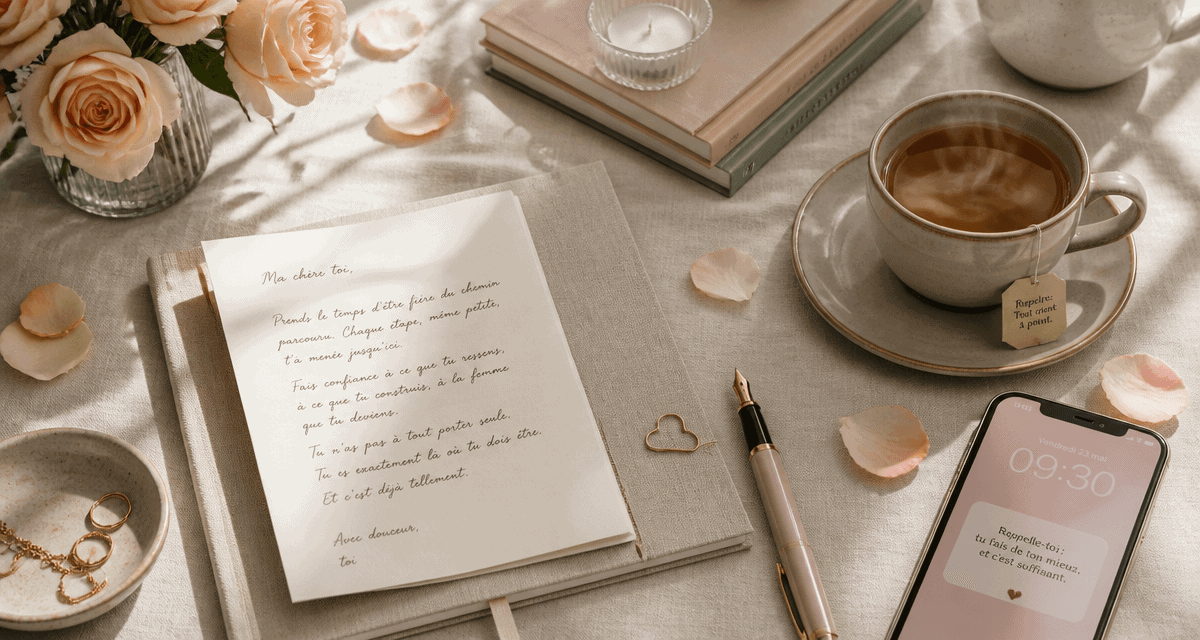 Ma chère toi,
Prends le temps d'être fière du chemin
parcouru. Chaque étape, même petite,
t'a menée jusqu'ici.
Fais confiance à ce que tu ressens,
à ce que tu construis, à la femme
que tu deviens.
Tu n'as pas à tout porter seule.
Tu es exactement là où tu dois être.
Et c'est déjà tellement.
Avec douceur,
toi
Tout
à point.
Vendredi 23 mai
09:30
Rappelle-toi :
tu fais de ton mieux,
et c'est suffisant.